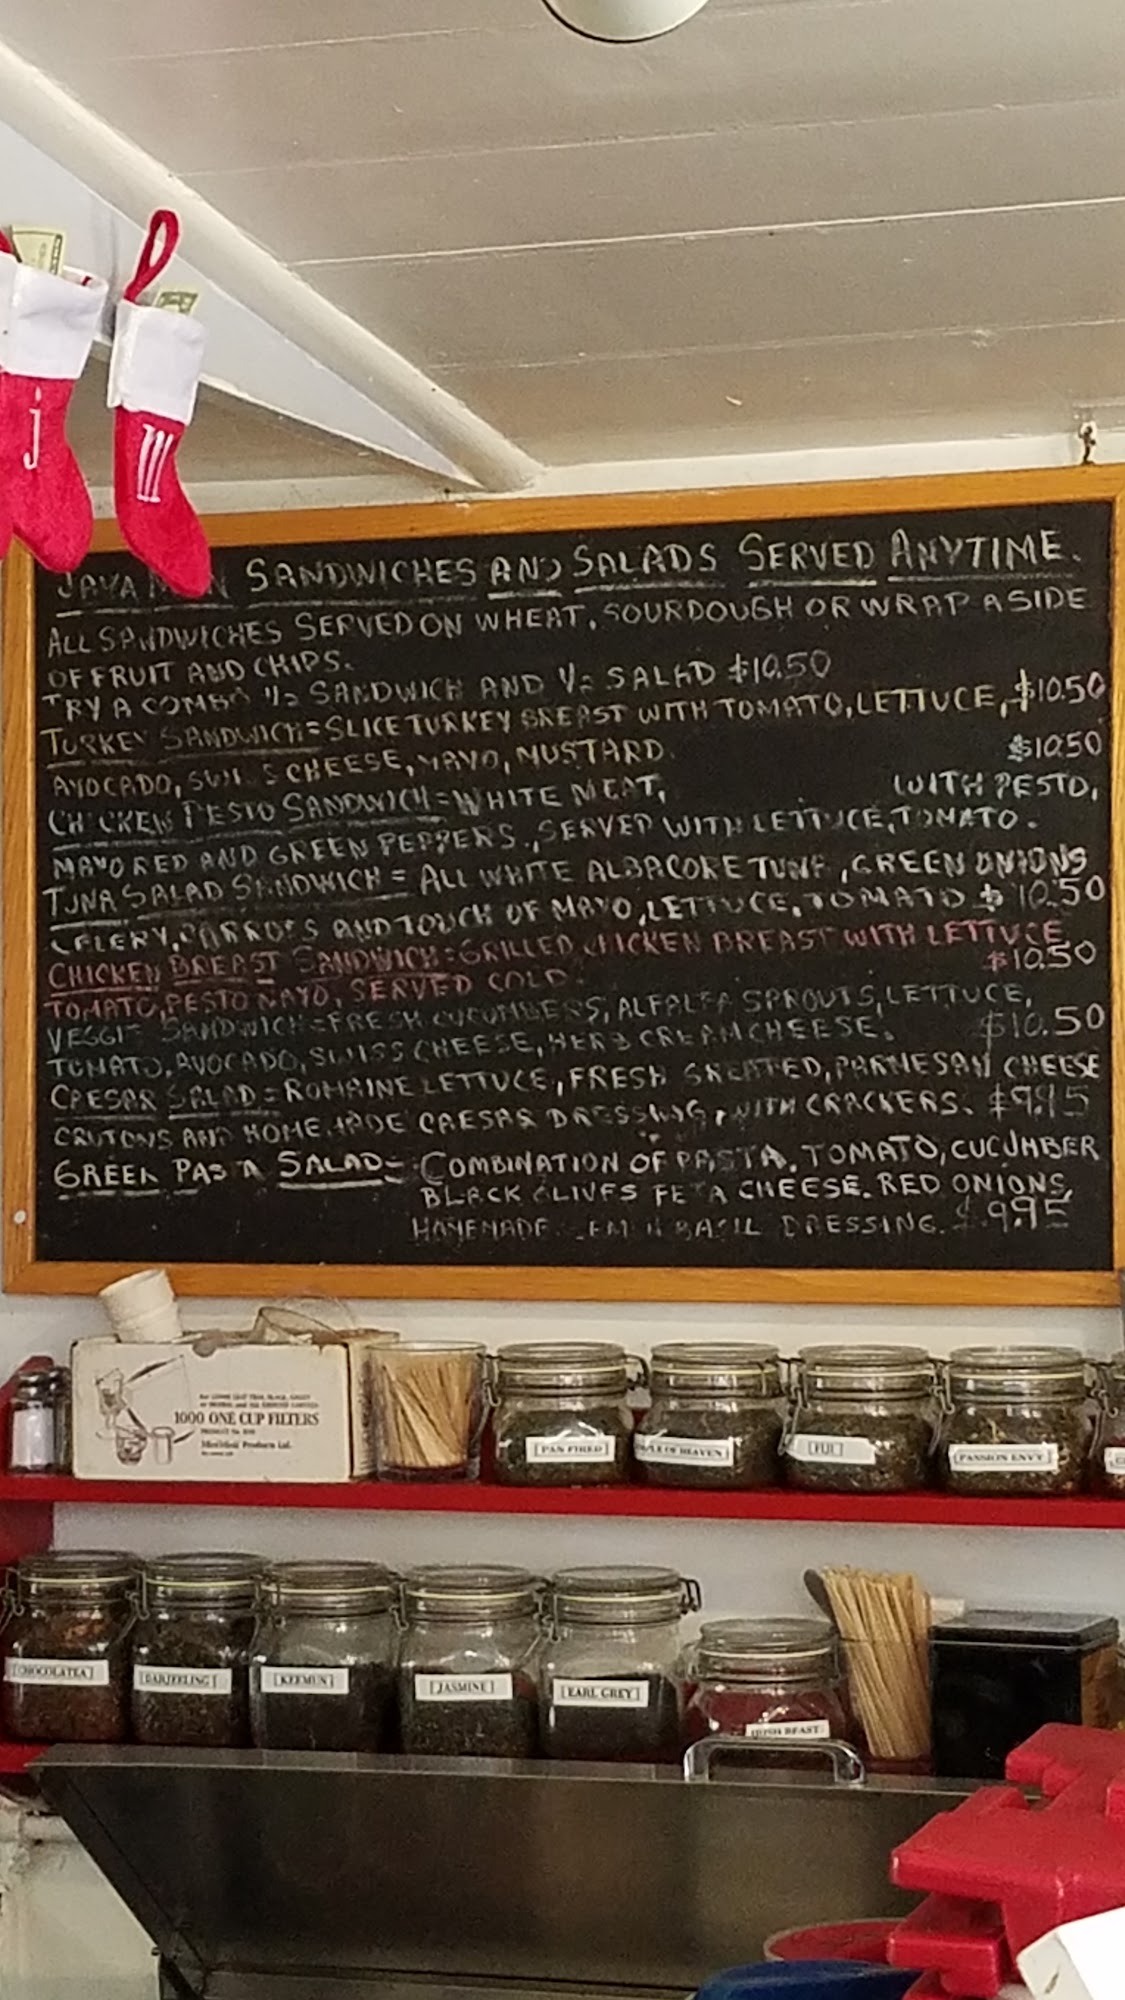 j
m
JAVA MAN SANDWICHES AND SALADS SERVED ANYTIME.
ALL SANDWICHES SERVED ON WHEAT, SOURDOUGH OR WRAP A SIDE
OF FRUIT AND CHIPS.
TRY A COMBO 1/2 SANDWICH AND 1/2 SALAD $10.50
TURKEY SANDWICH = SLICE TURKEY BREAST WITH TOMATO, LETTUCE, $10.50
AVOCADO, SWISS CHEESE, MAYO, MUSTARD. $10.50
CHICKEN PESTO SANDWICH = WHITE MEAT, WITH PESTO,
MAYO RED AND GREEN PEPPERS., SERVED WITH LETTUCE, TOMATO.
TUNA SALAD SANDWICH = ALL WHITE ALBACORE TUNA, GREEN ONIONS
CELERY, CARROTS AND TOUCH OF MAYO, LETTUCE, TOMATO $10.50
CHICKEN BREAST SANDWICH = GRILLED CHICKEN BREAST WITH LETTUCE
TOMATO, PESTO MAYO, SERVED COLD. $10.50
VEGGIE SANDWICH = FRESH CUCUMBERS, ALFALFA SPROUTS, LETTUCE,
TOMATO, AVOCADO, SWISS CHEESE, HERB CREAM CHEESE. $10.50
CAESAR SALAD = ROMAINE LETTUCE, FRESH GREATED, PARMESAN CHEESE
CRUTONS AND HOMEMADE CAESAR DRESSING, WITH CRACKERS. $9.95
GREEK PASTA SALAD = COMBINATION OF PASTA, TOMATO, CUCUMBER
BLACK OLIVES FETA CHEESE. RED ONIONS,
HOMEMADE LEMON BASIL DRESSING. $9.95
1000 ONE CUP FILTERS
PAN FIRED
OF HEAVEN
FIJI
PASSION ENVY
CHOCOLATEA
DARJEELING
KEEMUN
JASMINE
EARL GREY
IRISH BEAST